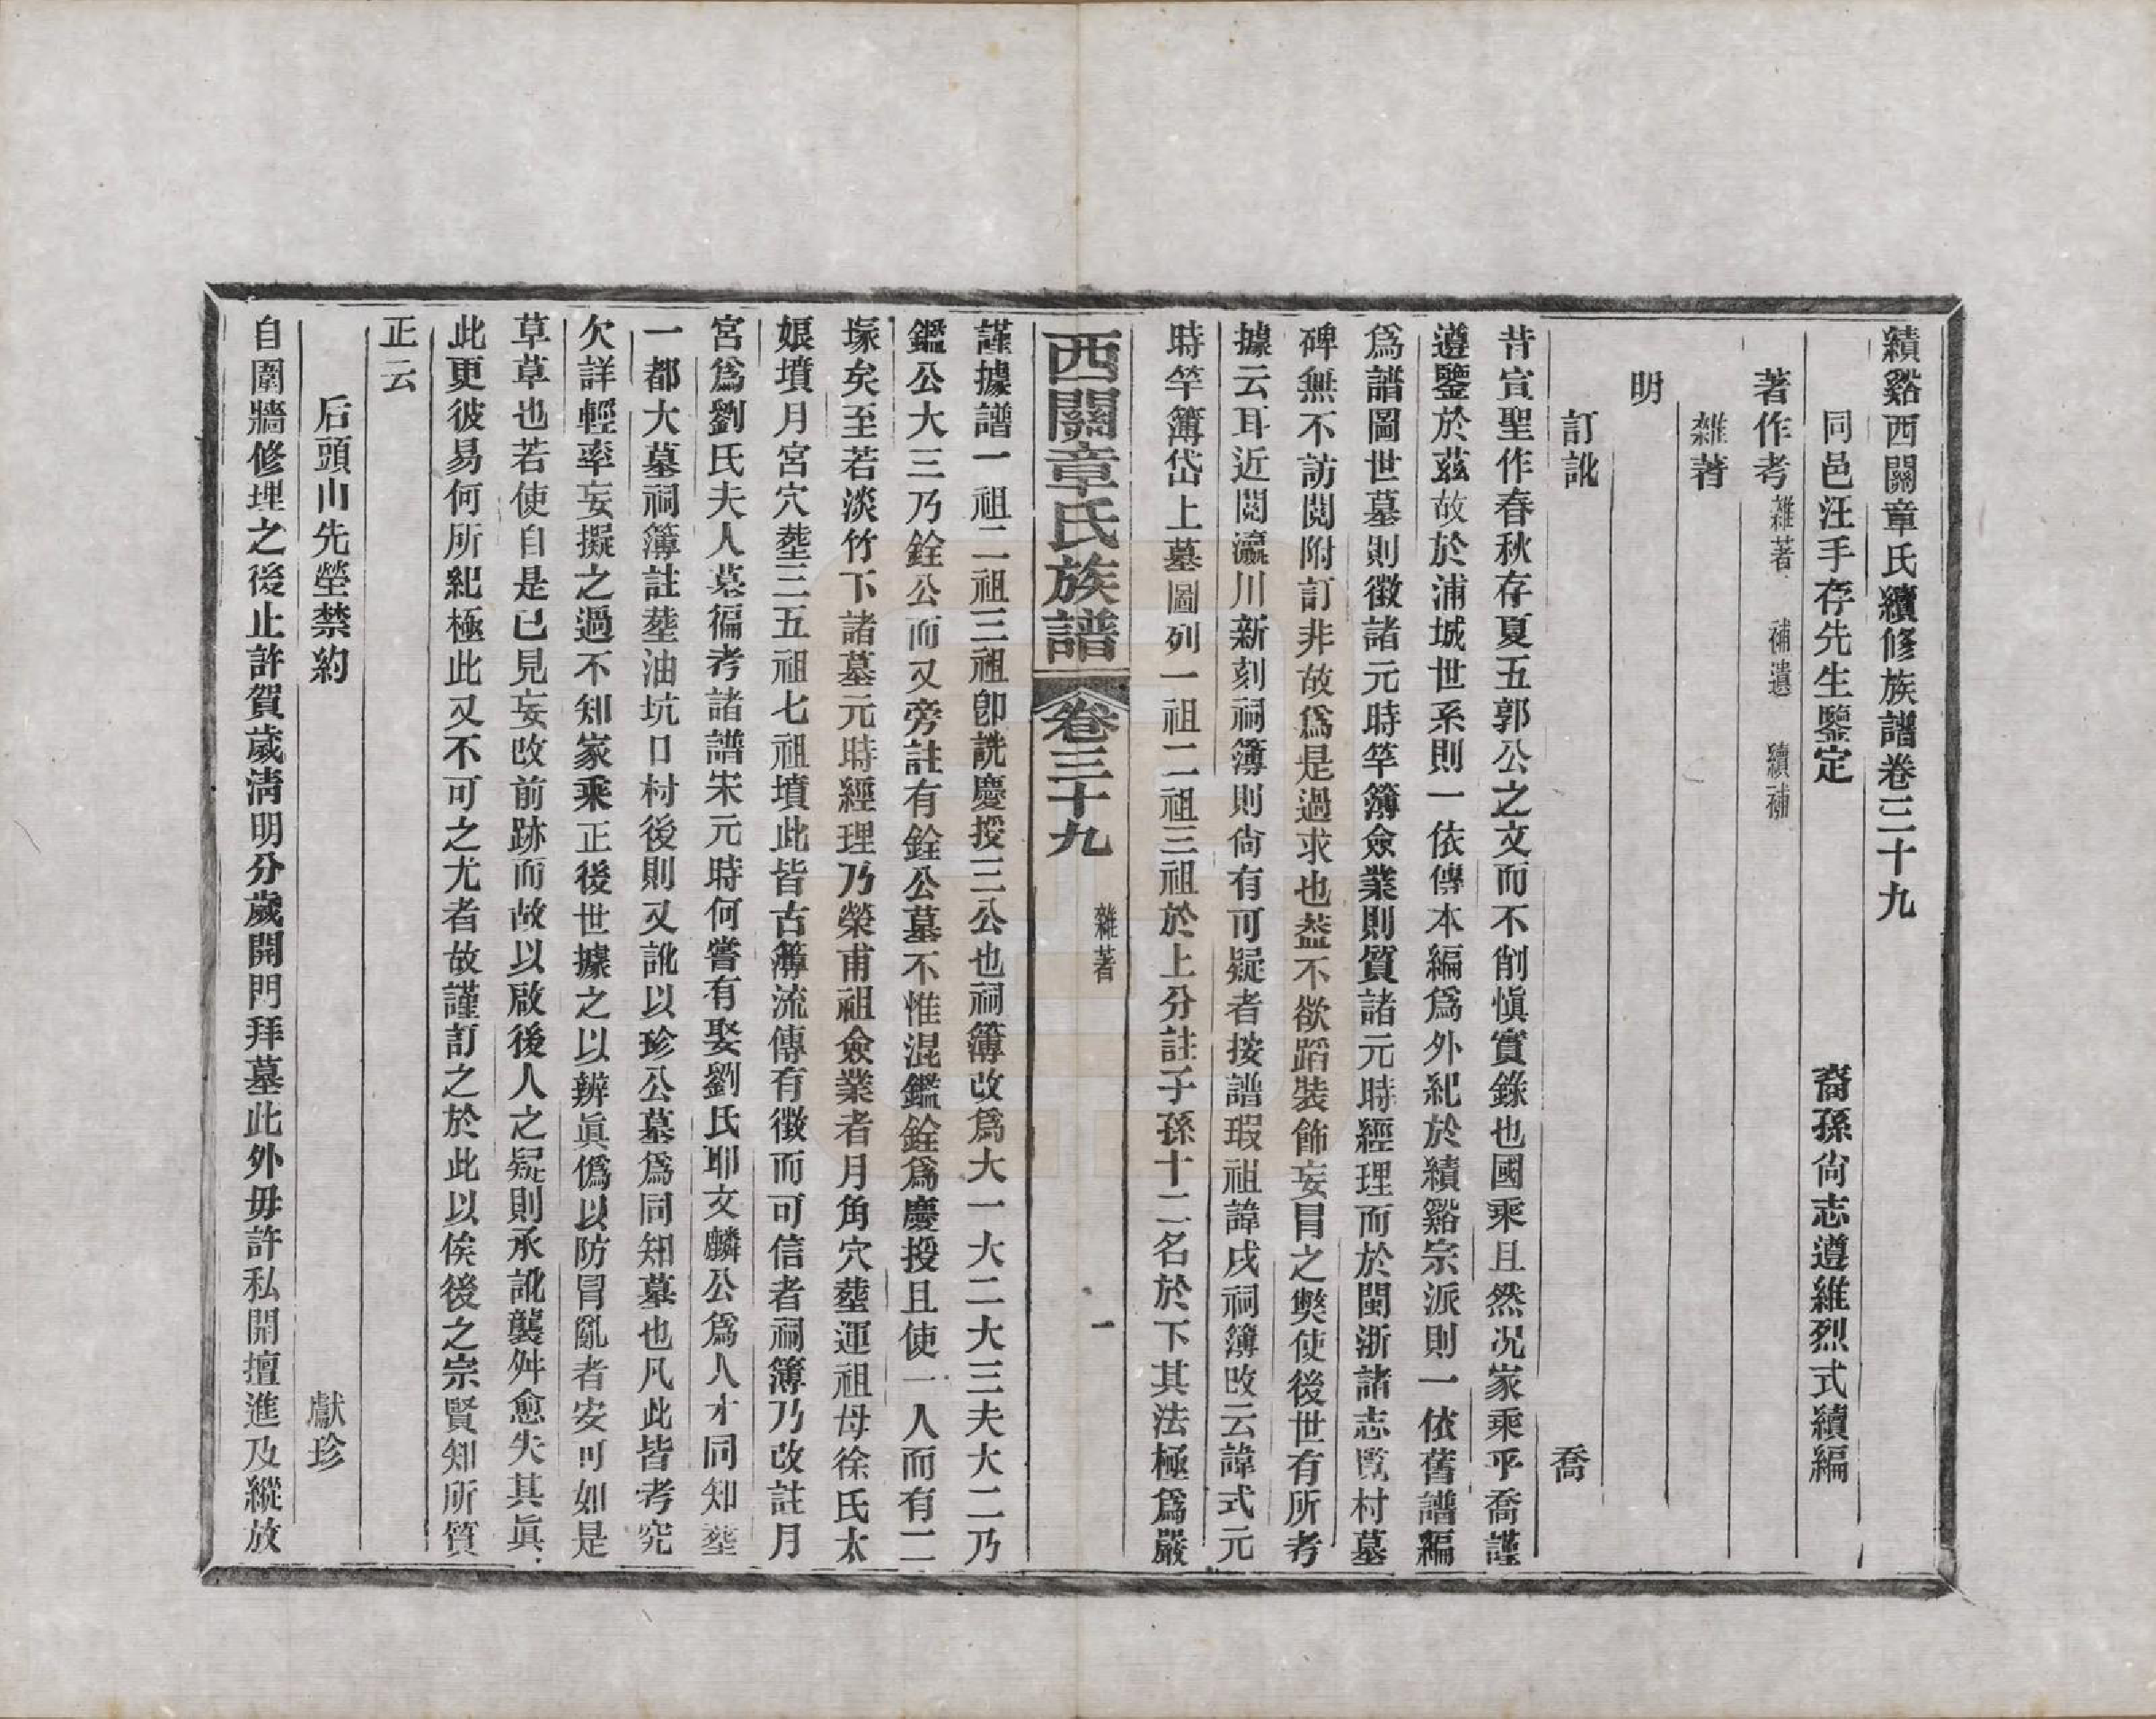 績谿西關章氏續修族譜卷三十九
同邑汪手存先生鑒定　裔孫尙志遵維烈式續編
著作考 雜著 補遺 續補
雜著
明
訂訛　喬
昔宣聖作春秋存夏五郭公之文而不削愼實錄也國乘且然况家乘乎喬謹
遵鑒於茲故於浦城世系則一依傳本編爲外紀於績谿宗派則一依舊譜編
爲譜圖世墓則徵諸元時竿簿僉業則質諸元時經理而於閩浙諸志既村墓
碑無不訪閱附訂非故爲是過求也葢不欲蹈裝飾妄冒之獘使後世有所考
據云耳近閱瀛川新刻祠簿則尙有可疑者按譜瑕祖諱戌祠簿改云諱式元
時竿簿岱上墓圖列一祖二祖三祖於上分註子孫十二名於下其法極爲嚴
西關章氏族譜 卷三十九 雜著 一
謹據譜一祖二祖三祖卽詵慶授三公也祠簿改爲大一大二大三夫大二乃
鑑公大三乃銓公而又旁註有銓公墓不惟混鑑銓爲慶授且使一人而有二
塚矣至若淡竹下諸墓元時經理乃榮甫祖僉業者月角穴塟運祖母徐氏太
娘墳月宮穴塟三五祖七祖墳此皆古簿流傳有徵而可信者祠簿乃改註月
宮爲劉氏夫人墓徧考諸譜宋元時何嘗有娶劉氏耶文麟公爲人才同知塟
一都大墓祠簿註塟油坑口村後則又訛以珍公墓爲同知墓也凡此皆考究
欠詳輕率妄擬之過不知家乘正後世據之以辨眞僞以防冒亂者安可如是
草草也若使自是已見妄改前跡而故以啟後人之疑則承訛襲舛愈失其眞
此更彼易何所紀極此又不可之尤者故謹訂之於此以俟後之宗賢知所質
正云
后頭山先塋禁約　獻珍
自圍牆修理之後止許賀歲淸明分歲開門拜墓此外毋許私開擅進及縱放